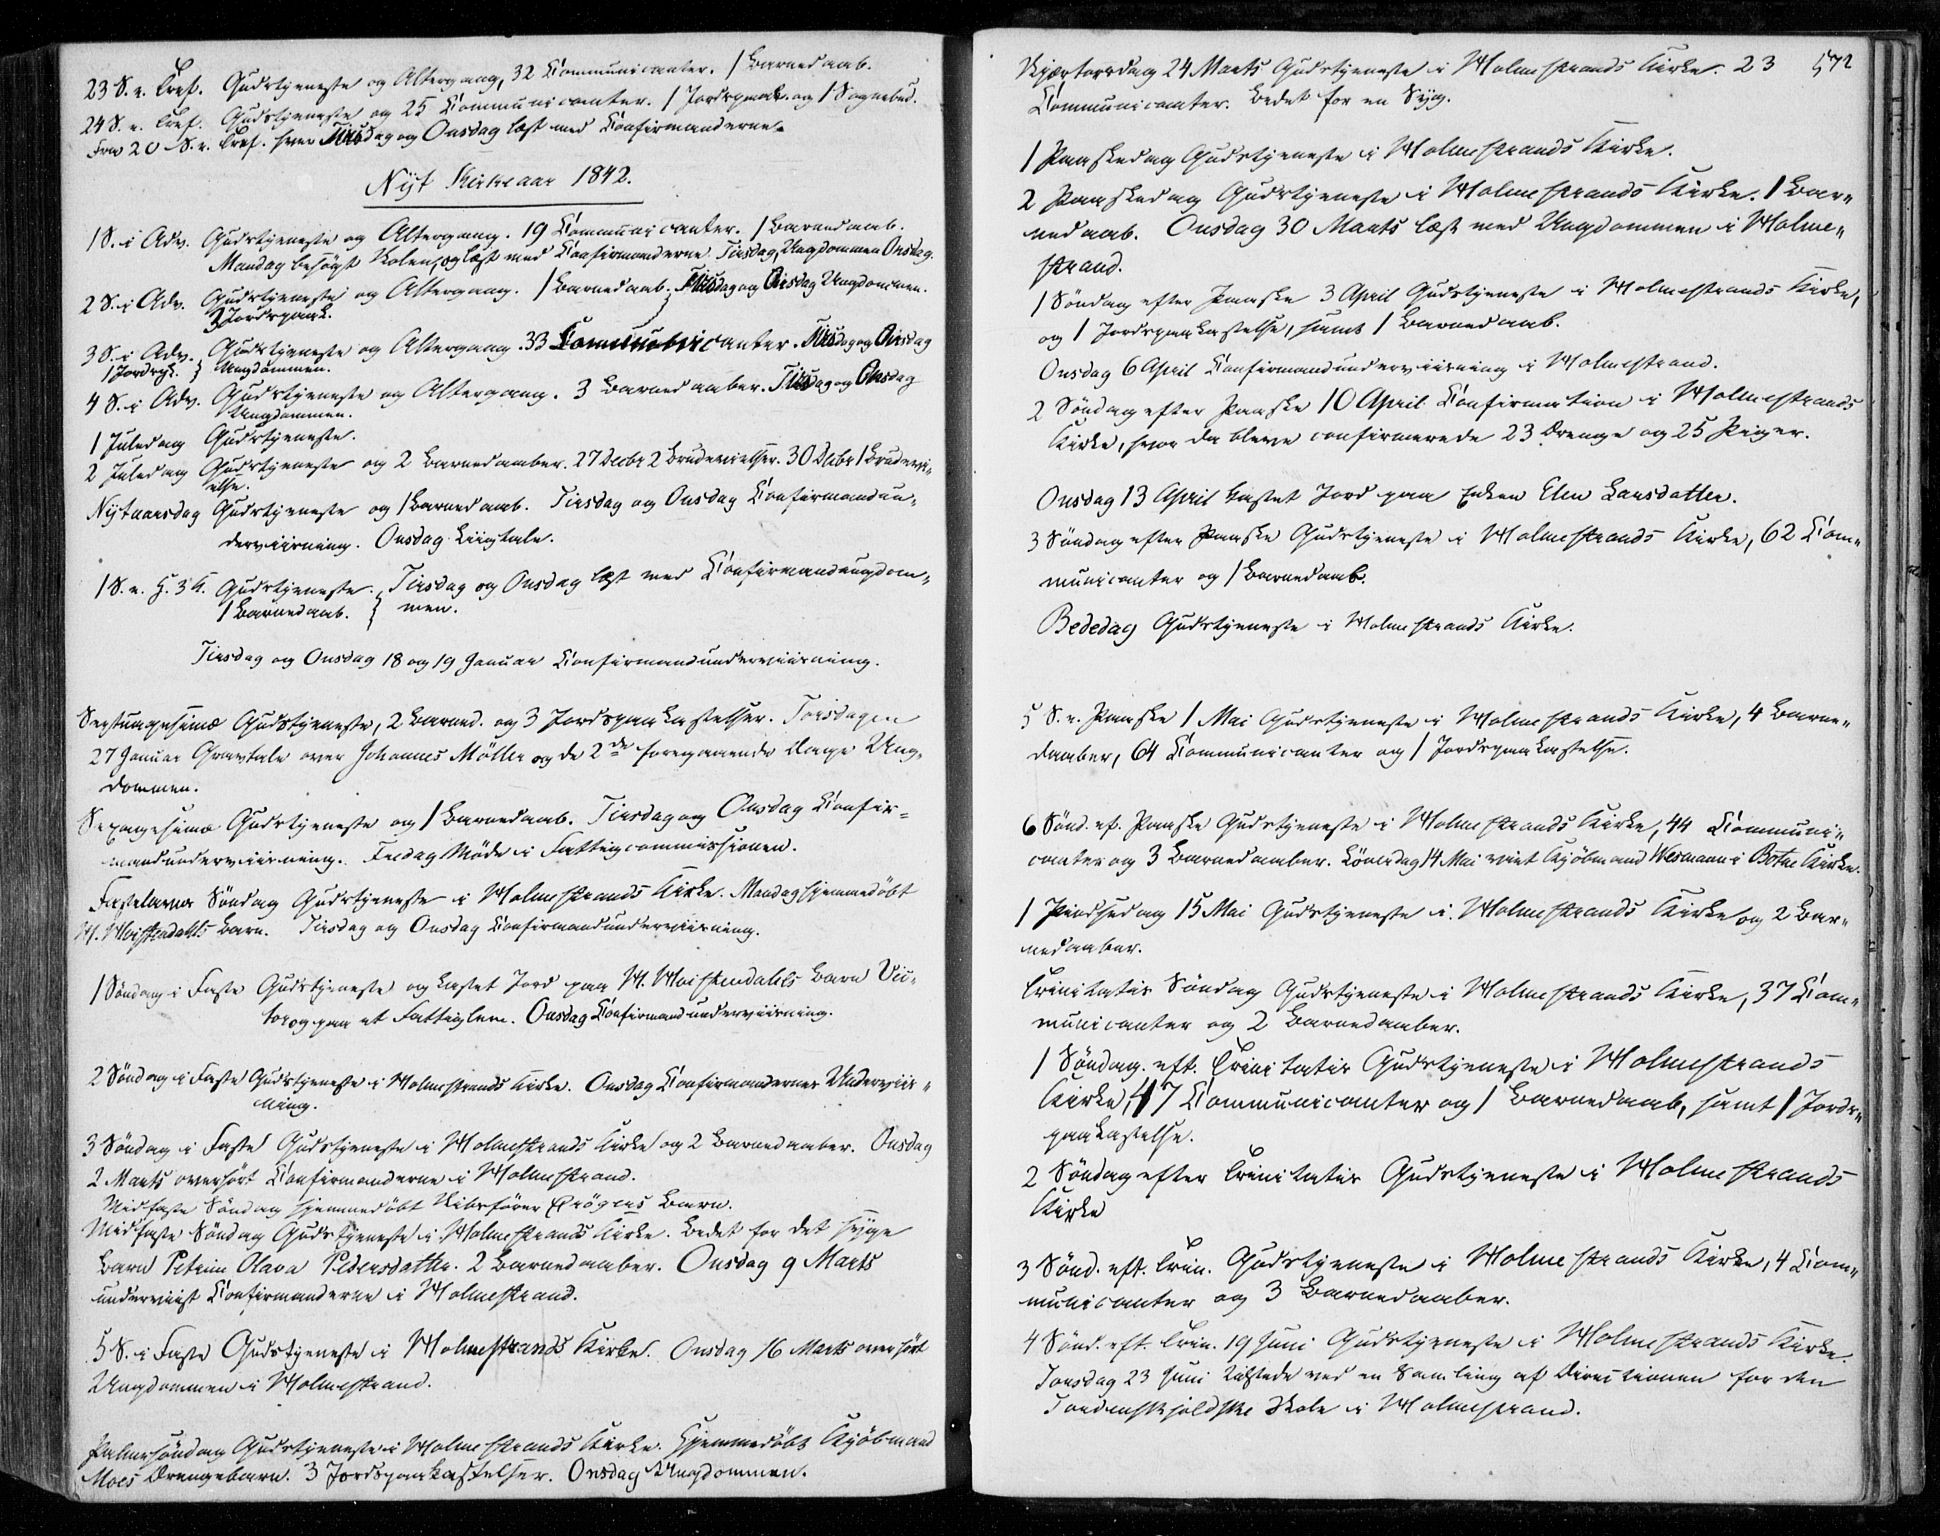 23 S. e. Tref. Gudstjeneste og Altergang, 32 Communicanter. 1 Barnedaab.
24 S. e. Tref. Gudstjeneste og 25 Communicanter. 1 Jordspaak. og 1 Sognebud.
Fra 20 S. e. Tref. hver Tirsdag og Onsdag læst med Confirmanderne.
Nyt Kirkeaar 1842.
1 S. i Adv. Gudstjeneste og Altergang. 19 Communicanter. 1 Barnedaab.
Mandag besögt Skolen, og læst med Confirmanderne Tirsdag, Ungdommen Onsdag.
2 S. i Adv. Gudstjeneste og Altergang. 1 Barnedaab. Tirsdag og Onsdag Ungdommen.
3 Jordspaak.
3 S. i Adv. Gudstjeneste og Altergang. 33 Communicanter. Tirsdag og Onsdag
1 Jordsp. } Ungdommen.
4 S. i Adv. Gudstjeneste og Altergang. 3 Barnedaaber. Tirsdag og Onsdag
Ungdommen.
1 Juledag Gudstjeneste.
2 Juledag Gudstjeneste og 2 Barnedaaber. 27 Decbr 2 Brudevielser. 30 Decbr 1 Brudevi-
else.
Nytaarsdag Gudstjeneste og 1 Barnedaab. Tirsdag og Onsdag Confirmandun-
derviisning. Onsdag Liigtale.
1 S. e. H. 3 K. Gudstjeneste. { Tirsdag og Onsdag læst med Confirmandungdom-
1 Barnedaab. } men.
Tirsdag og Onsdag 18 og 19 Januar Confirmandunderviisning.
Septuagesimæ Gudstjeneste, 2 Barned. og 3 Jordspaakastelser. Torsdagen
27 Januar Gravtale over Johannes Möller og de 2de foregaaende Dage Ung-
dommen.
Sexagesimæ Gudstjeneste og 1 Barnedaab. Tirsdag og Onsdag Confir-
mandunderviisning. Fredag Möde i Fattigcommissionen.
Fastelavns Söndag Gudstjeneste i Holmestrands Kirke. Mandag hjemmedöbt
Barn. Tirsdag og Onsdag Confirmandunderviisning.
1 Söndag i Faste Gudstjeneste og kastet Jord paa Barn Vic-
tor og paa et Fattiglem. Onsdag Confirmandunderviisning.
2 Söndag i Faste Gudstjeneste i Holmestrands Kirke. Onsdag Confirmandernes Underviis-
ning.
3 Söndag i Faste Gudstjeneste i Holmestrands Kirke og 2 Barnedaaber. Onsdag
2 Marts overhört Confirmanderne i Holmestrand.
Midfaste Söndag hjemmedöbt Skibsförer Barn.
Midfaste Söndag Gudstjeneste i Holmestrands Kirke. Bedet for det syge
Barn Petrine Olava Pedersdatter. 2 Barnedaaber. Onsdag 9 Marts
underviist Confirmanderne i Holmestrand.
5 S. i Faste Gudstjeneste i Holmestrands Kirke. Onsdag 16 Marts overhört
Ungdommen i Holmestrand.
Palmesöndag Gudstjeneste i Holmestrands Kirke. Hjemmedöbt Kjöbmand
Moes Drengebarn. 3 Jordspaakastelser. Onsdag Ungdommen.
Skjærtorsdag 24 Marts Gudstjeneste i Holmestrands Kirke. 23
572
Communicanter. Bedet for en Syg.
1 Paaskedag Gudstjeneste i Holmestrands Kirke.
2 Paaskedag Gudstjeneste i Holmestrands Kirke. 1 Bar-
nedaab. Onsdag 30 Marts læst med Ungdommen i Holme-
strand.
1 Söndag efter Paaske 3 April Gudstjeneste i Holmestrands Kirke,
og 1 Jordspaakastelse, samt 1 Barnedaab.
Onsdag 6 April Confirmandunderviisning i Holmestrand.
2 Söndag efter Paaske 10 April Confirmation i Holmestrands
Kirke, hvor da bleve confirmerede 23 Drenge og 25 Piger.
Onsdag 13 April kastet Jord paa Enken Elen Larsdatter.
3 Söndag efter Paaske Gudstjeneste i Holmestrands Kirke, 62 Com-
municanter og 1 Barnedaab.
Bededag Gudstjeneste i Holmestrands Kirke.
5 S. e. Paaske 1 Mai Gudstjeneste i Holmestrands Kirke, 4 Barne-
daaber, 64 Communicanter og 1 Jordspaakastelse.
6 Sönd. ef. Paaske Gudstjeneste i Holmestrands Kirke, 44 Communi-
canter og 3 Barnedaaber. Löverdag 14 Mai viet Kjöbmand Wesmann i Botne Kirke.
1 Pindsedag 15 Mai Gudstjeneste i Holmestrands Kirke og 2 Bar-
nedaaber.
Trinitatis Söndag Gudstjeneste i Holmestrands Kirke, 37 Com-
municanter og 2 Barnedaaber.
1 Söndag eft. Trinitatis Gudstjeneste i Holmestrands
Kirke, 47 Communicanter og 1 Barnedaab, samt 1 Jords-
paakastelse.
2 Söndag efter Trinitatis Gudstjeneste i Holmestrands
Kirke
3 Sönd. eft. Trin. Gudstjeneste i Holmestrands Kirke, 4 Com-
municanter og 3 Barnedaaber.
4 Sönd. eft. Trin. 19 Juni Gudstjeneste i Holmestrands Kirke.
Torsdag 23 Juni tilstede ved en Samling af Directionen for den
Tordenskjoldske Skole i Holmestrand.